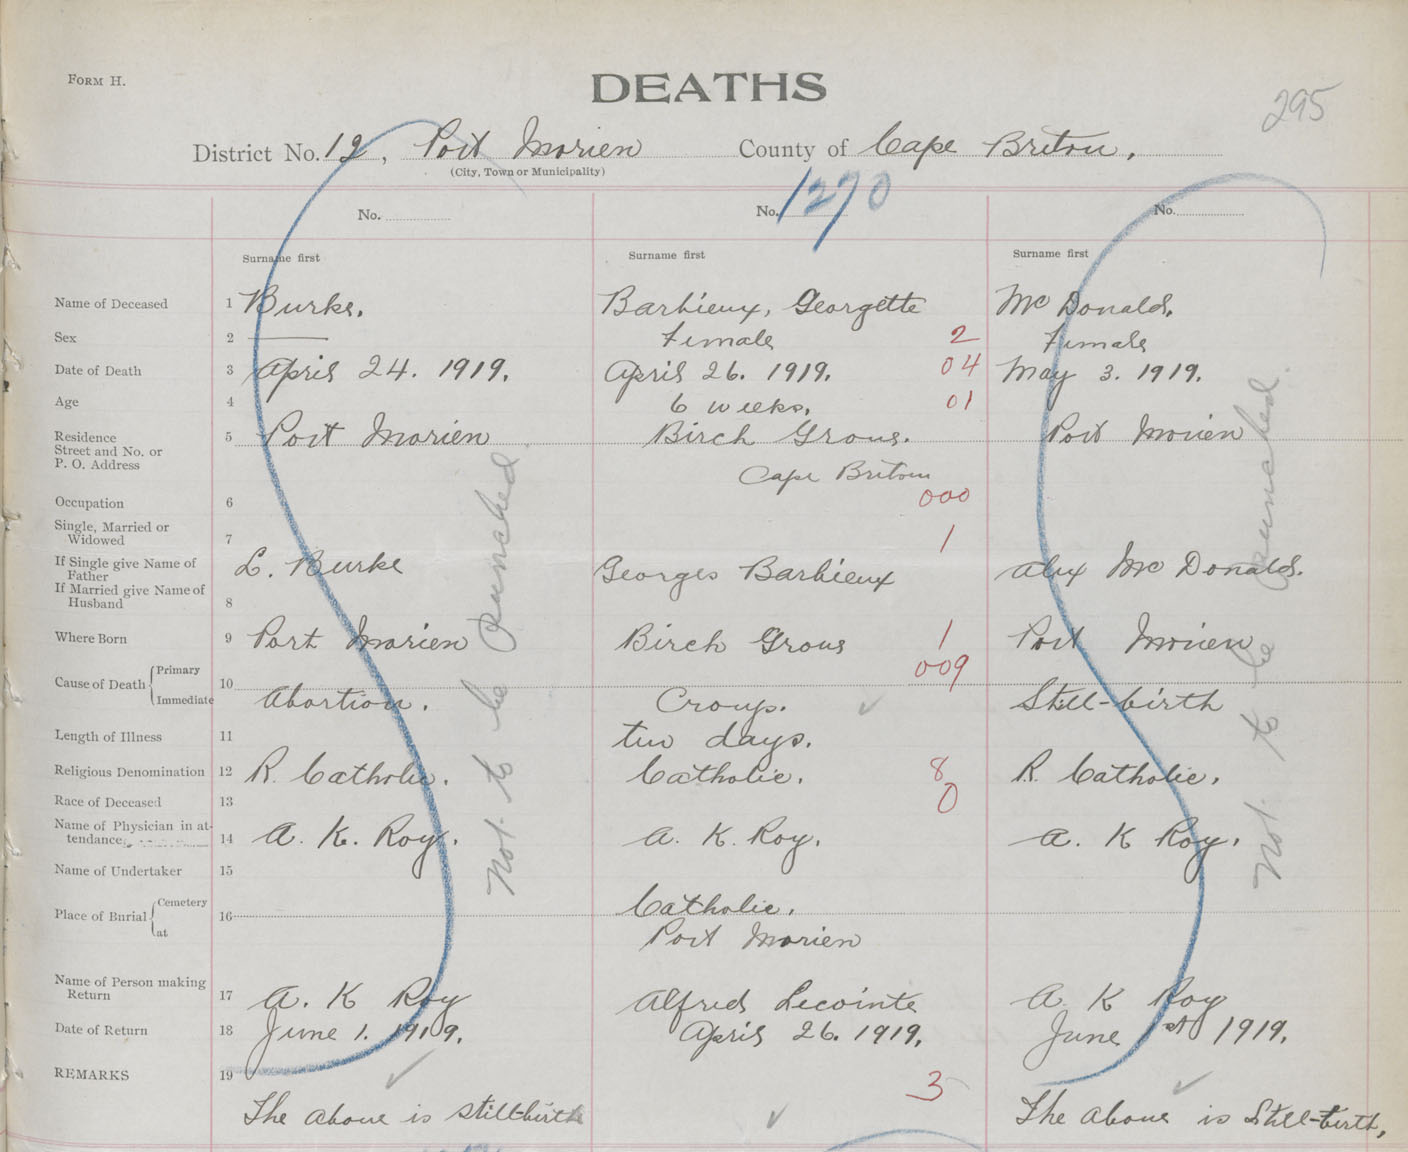 FORM H.
DEATHS
295
District No. 12, Port Morien County of Cape Breton.
(City, Town or Municipality)
No. No. 1270 No.
Surname first Surname first Surname first
Name of Deceased 1 Burke. Barbieux, Georgette McDonald.
Sex 2 — Female 2 Female
Date of Death 3 April 24. 1919. April 26. 1919. 04 May 3. 1919.
Age 4 6 weeks. 01
Residence Street and No. or P. O. Address 5 Port Morien Birch Grove. Port Morien
Cape Breton
Occupation 6 000
Single, Married or Widowed 7 1
If Single give Name of Father L. Burke Georges Barbieux Alex McDonald.
If Married give Name of Husband 8
Where Born 9 Port Morien Birch Grove 1 Port Morien
Cause of Death { Primary 10 009
Immediate Abortion. Croup. Still-birth
Length of Illness 11 two days.
Religious Denomination 12 R. Catholic. Catholic. 8 R. Catholic.
Race of Deceased 13 0
Name of Physician in attendance 14 A. K. Roy. A. K. Roy. A. K Roy.
Name of Undertaker 15
Place of Burial { Cemetery 16 Catholic.
at Port Morien
Name of Person making Return 17 A. K Roy Alfred Lecointe A K Roy
Date of Return 18 June 1. 1919. April 26. 1919. June 1st 1919.
REMARKS 19 3
The above is still-birth The above is Still-birth.
Not to be Punched.
Not to be Punched.